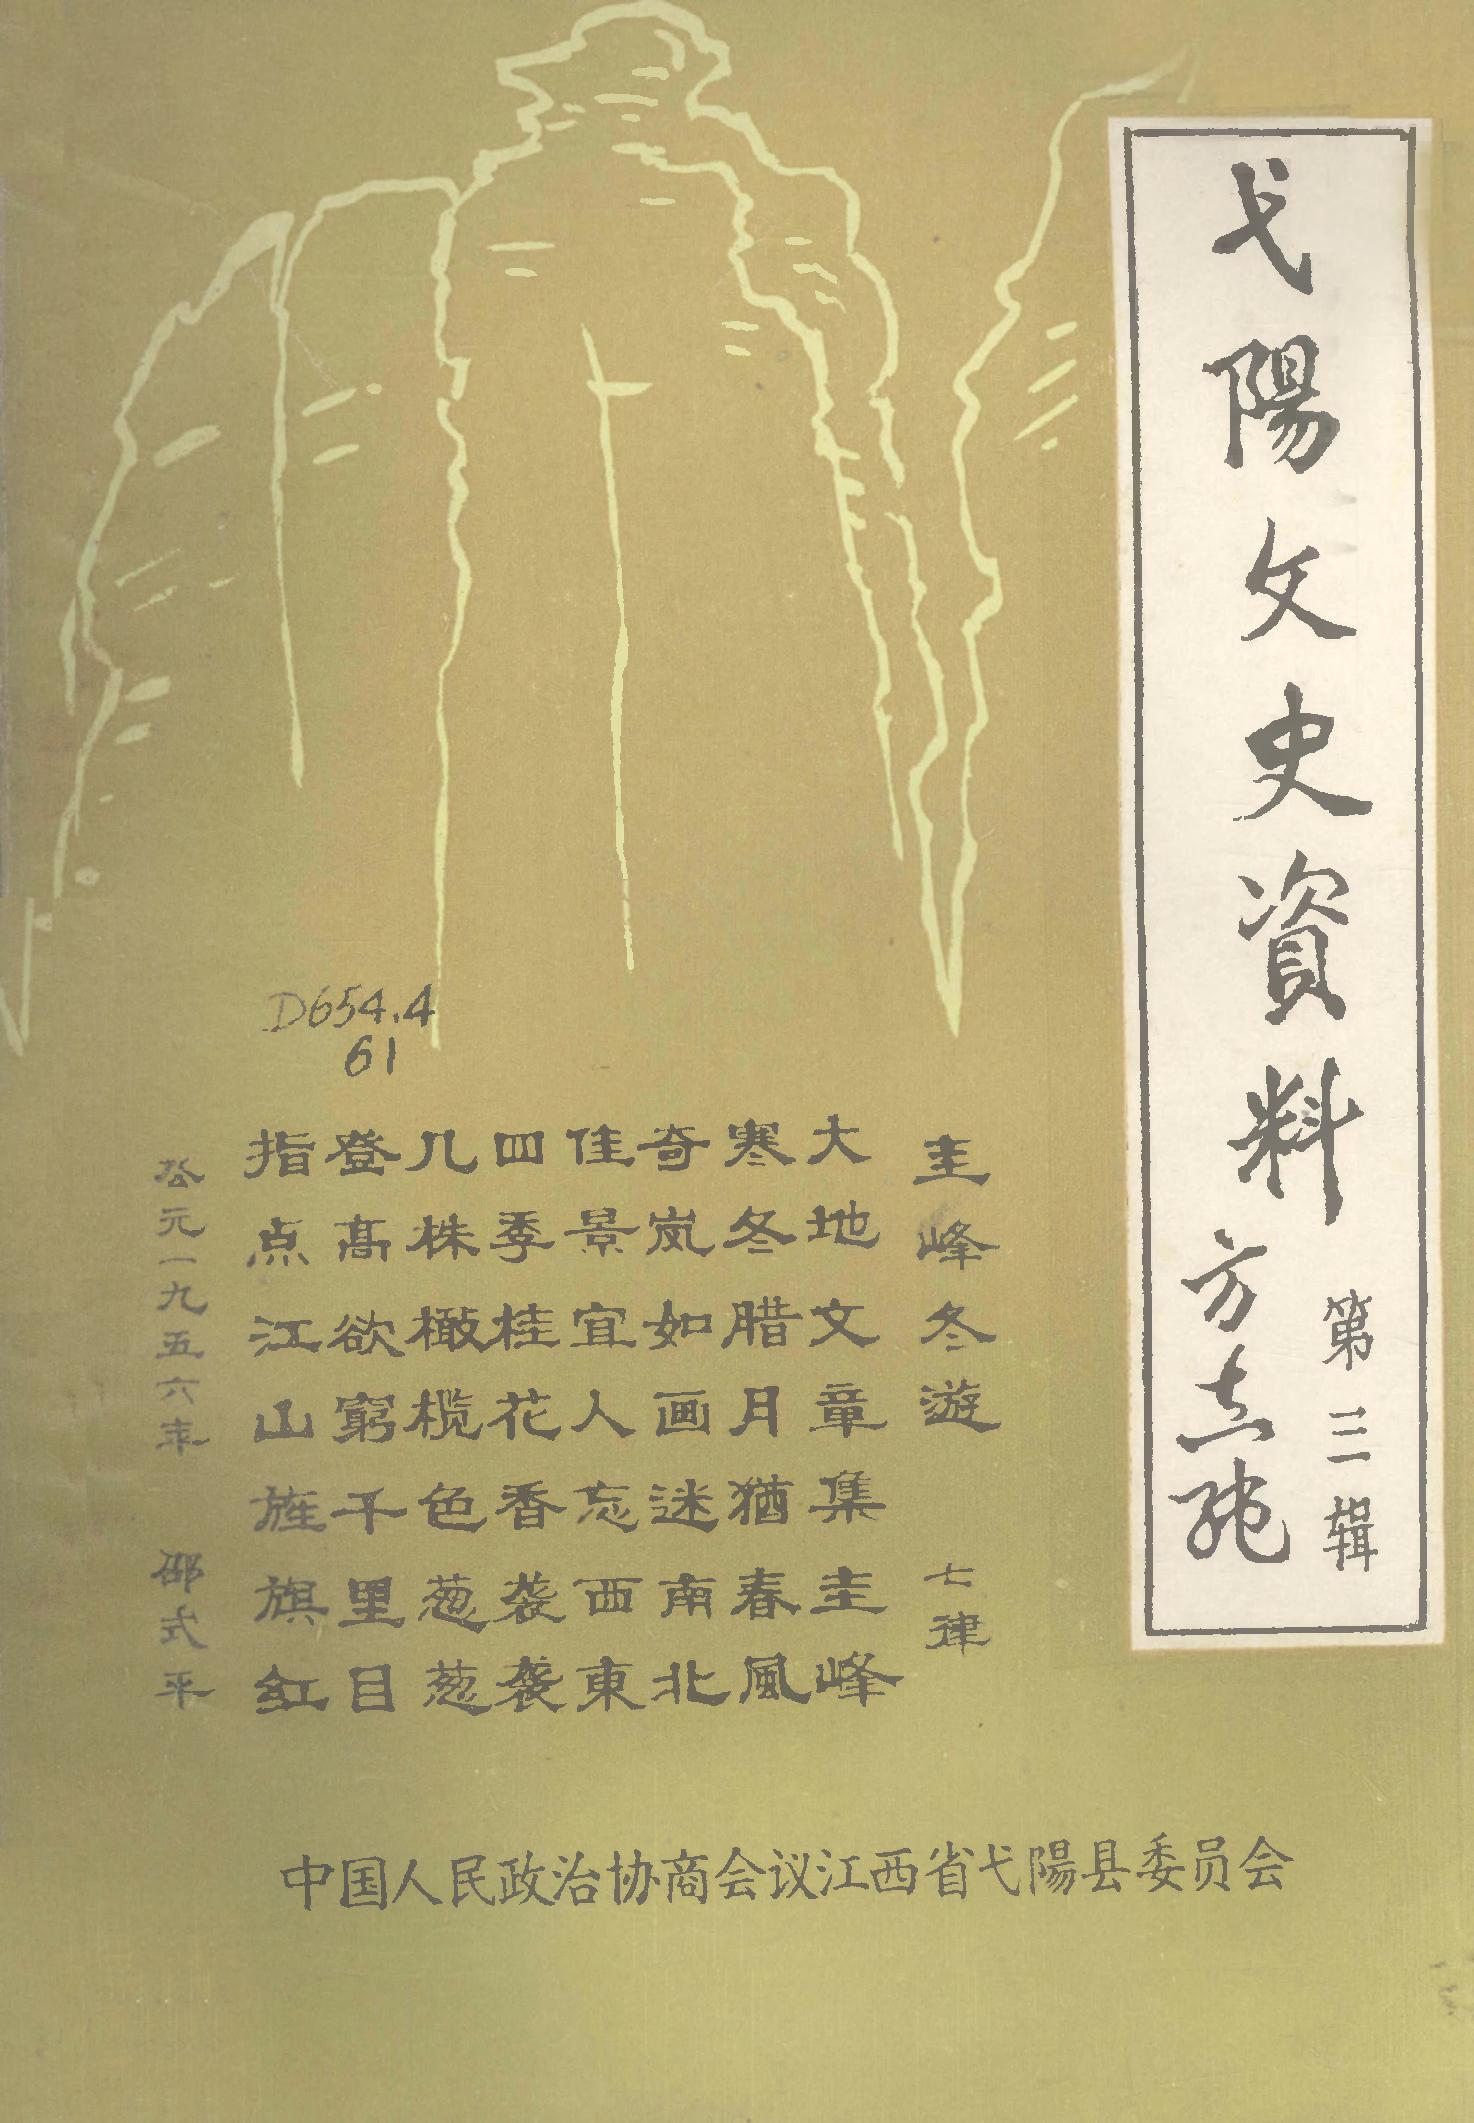 弋陽文史資料
第三辑
方志纯
圭峰冬游 七律
大地文章集圭峰
寒冬腊月猶春風
奇岚如画迷南北
佳景宜人忘西東
四季桂花香袭袭
几株橄榄色葱葱
登高欲窮千里目
指点江山旌旗红
公元一九五六年 邵式平
D654.4
61
中国人民政治协商会议江西省弋陽县委员会